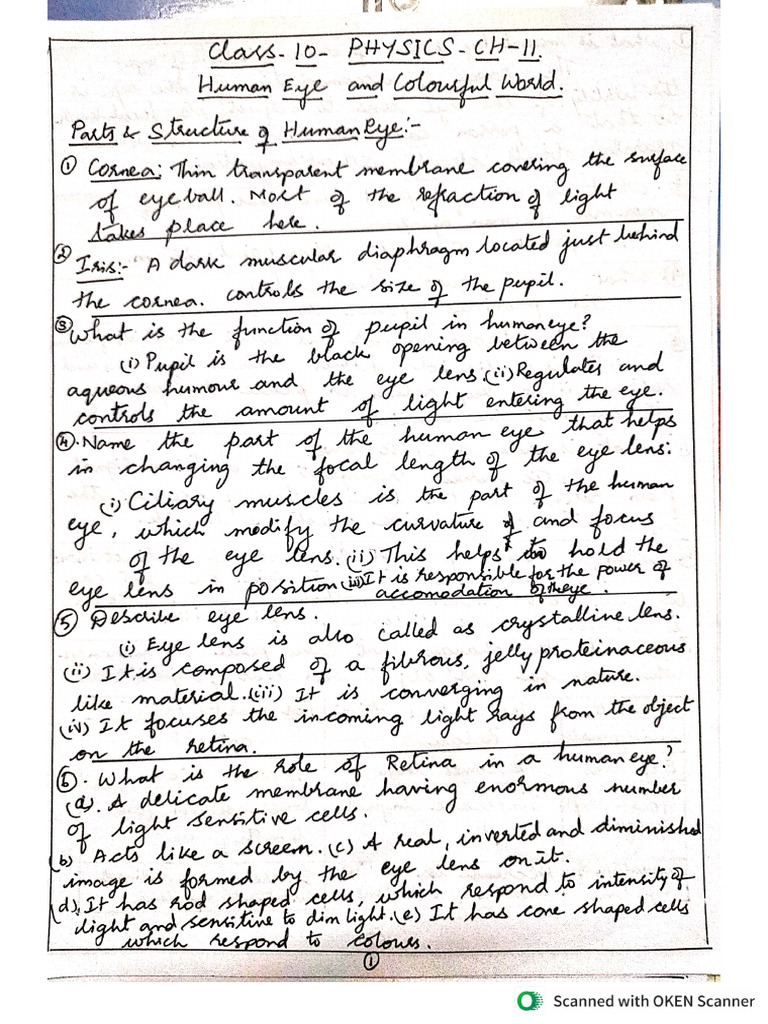 Class-10- PHYSICS-CH-11.
Human Eye and Colourful World.
Parts & Structure of Human Eye:-
① Cornea: Thin transparent membrane covering the surface
of eyeball. Most of the refraction of light
takes place here.
② Iris:- A dark muscular diaphragm located just behind
the cornea. controls the size of the pupil.
③ What is the function of pupil in human eye?
(i) Pupil is the black opening between the
aqueous humour and the eye lens. (ii) Regulates and
controls the amount of light entering the eye.
④. Name the part of the human eye that helps
in changing the focal length of the eye lens:
(i) Ciliary muscles is the part of the human
eye, which modify the curvature and focus
of the eye lens. (ii) This helps to hold the
eye lens in position (iii) It is responsible for the power of
accomodation of the eye.
⑤ Describe eye lens.
(i) Eye lens is also called as crystalline lens.
(ii) It is composed of a fibrous, jelly proteinaceous
like material. (iii) It is converging in nature.
(iv) It focuses the incoming light rays from the object
on the retina.
⑥. What is the role of Retina in a human eye?
(a). A delicate membrane having enormous number
of light sensitive cells.
(b) Acts like a screen. (c) A real, inverted and diminished
image is formed by the eye lens on it.
(d). It has rod shaped cells, which respond to intensity of
light and sensitive to dim light. (e) It has cone shaped cells
which respond to colours.
①
Scanned with OKEN Scanner